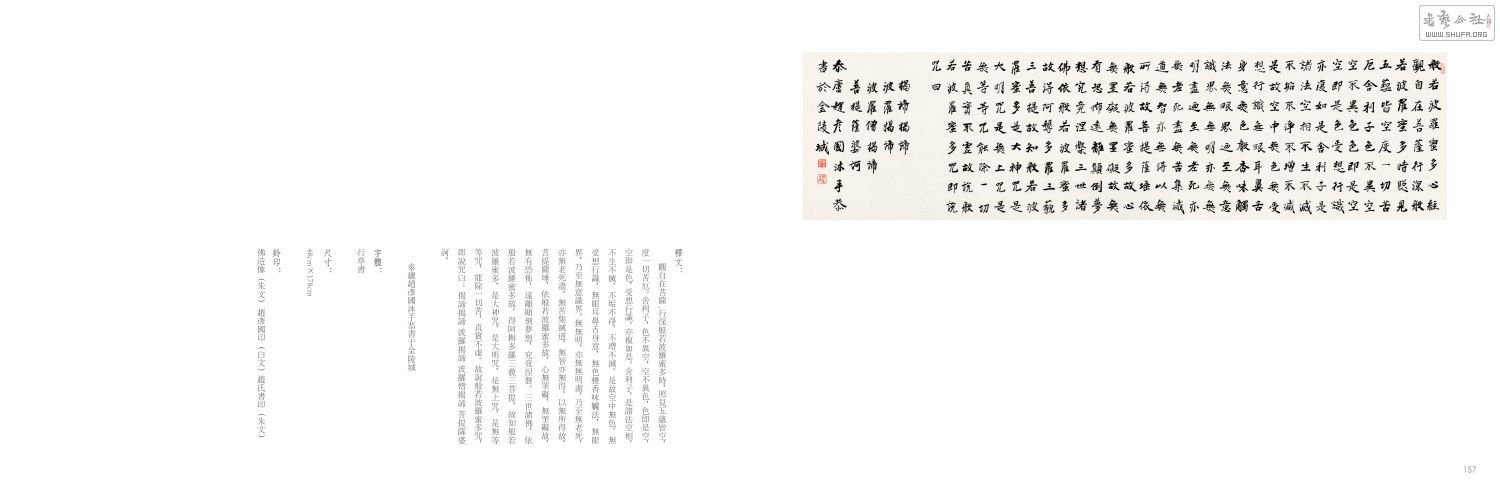 書藝公社
WWW.SHUFA.ORG
般若波羅蜜多心經
觀自在菩薩行深般
若波羅蜜多時照見
五蘊皆空度一切苦
厄舍利子色不異空
空不異色色即是空
空即是色受想行識
亦復如是舍利子是
諸法空相不生不滅
不垢不淨不增不減
是故空中無色無受
想行識無眼耳鼻舌
身意無色聲香味觸
法無眼界乃至無意
識界無無明亦無無
明盡乃至無老死亦
無老死盡無苦集滅
道無智亦無得以無
所得故菩提薩埵依
般若波羅蜜多故心
無罣礙無罣礙故無
有恐怖遠離顛倒夢
想究竟涅槃三世諸
佛依般若波羅蜜多
故得阿耨多羅三藐
三菩提故知般若波
羅蜜多是大神咒是
大明咒是無上咒是
無等等咒能除一切
苦真實不虛故說般
若波羅蜜多咒即說
咒曰
揭諦揭諦
波羅揭諦
波羅僧揭諦
菩提薩婆訶
泰廬趙彥國沐手恭
書於金陵城
釋文：
觀自在菩薩，行深般若波羅蜜多時，照見五蘊皆空，
度一切苦厄。舍利子，色不異空，空不異色，色即是空，
空即是色，受想行識，亦複如是。舍利子，是諸法空相，
不生不滅，不垢不淨，不增不減。是故空中無色，無
受想行識，無眼耳鼻舌身意，無色聲香味觸法，無眼
界，乃至無意識界。無無明，亦無無明盡，乃至無老死，
亦無老死盡。無苦集滅道，無智亦無得。以無所得故，
菩提薩埵，依般若波羅蜜多故，心無罣礙，無罣礙故，
無有恐怖，遠離顛倒夢想，究竟涅磐。三世諸佛，依
般若波羅蜜多故，得阿耨多羅三藐三菩提。故知般若
波羅蜜多，是大神咒，是大明咒，是無上咒，是無等
等咒，能除一切苦，真實不虛。故說般若波羅蜜多咒，
即說咒曰：揭諦揭諦 波羅揭諦 波羅僧揭諦 菩提薩婆
訶。
泰廬趙彥國沐手恭書于金陵城
字體：
行草書
尺寸：
48cm×178cm
鈐印：
佛造像（朱文）趙彥國印（白文）趙氏書印（朱文）
157